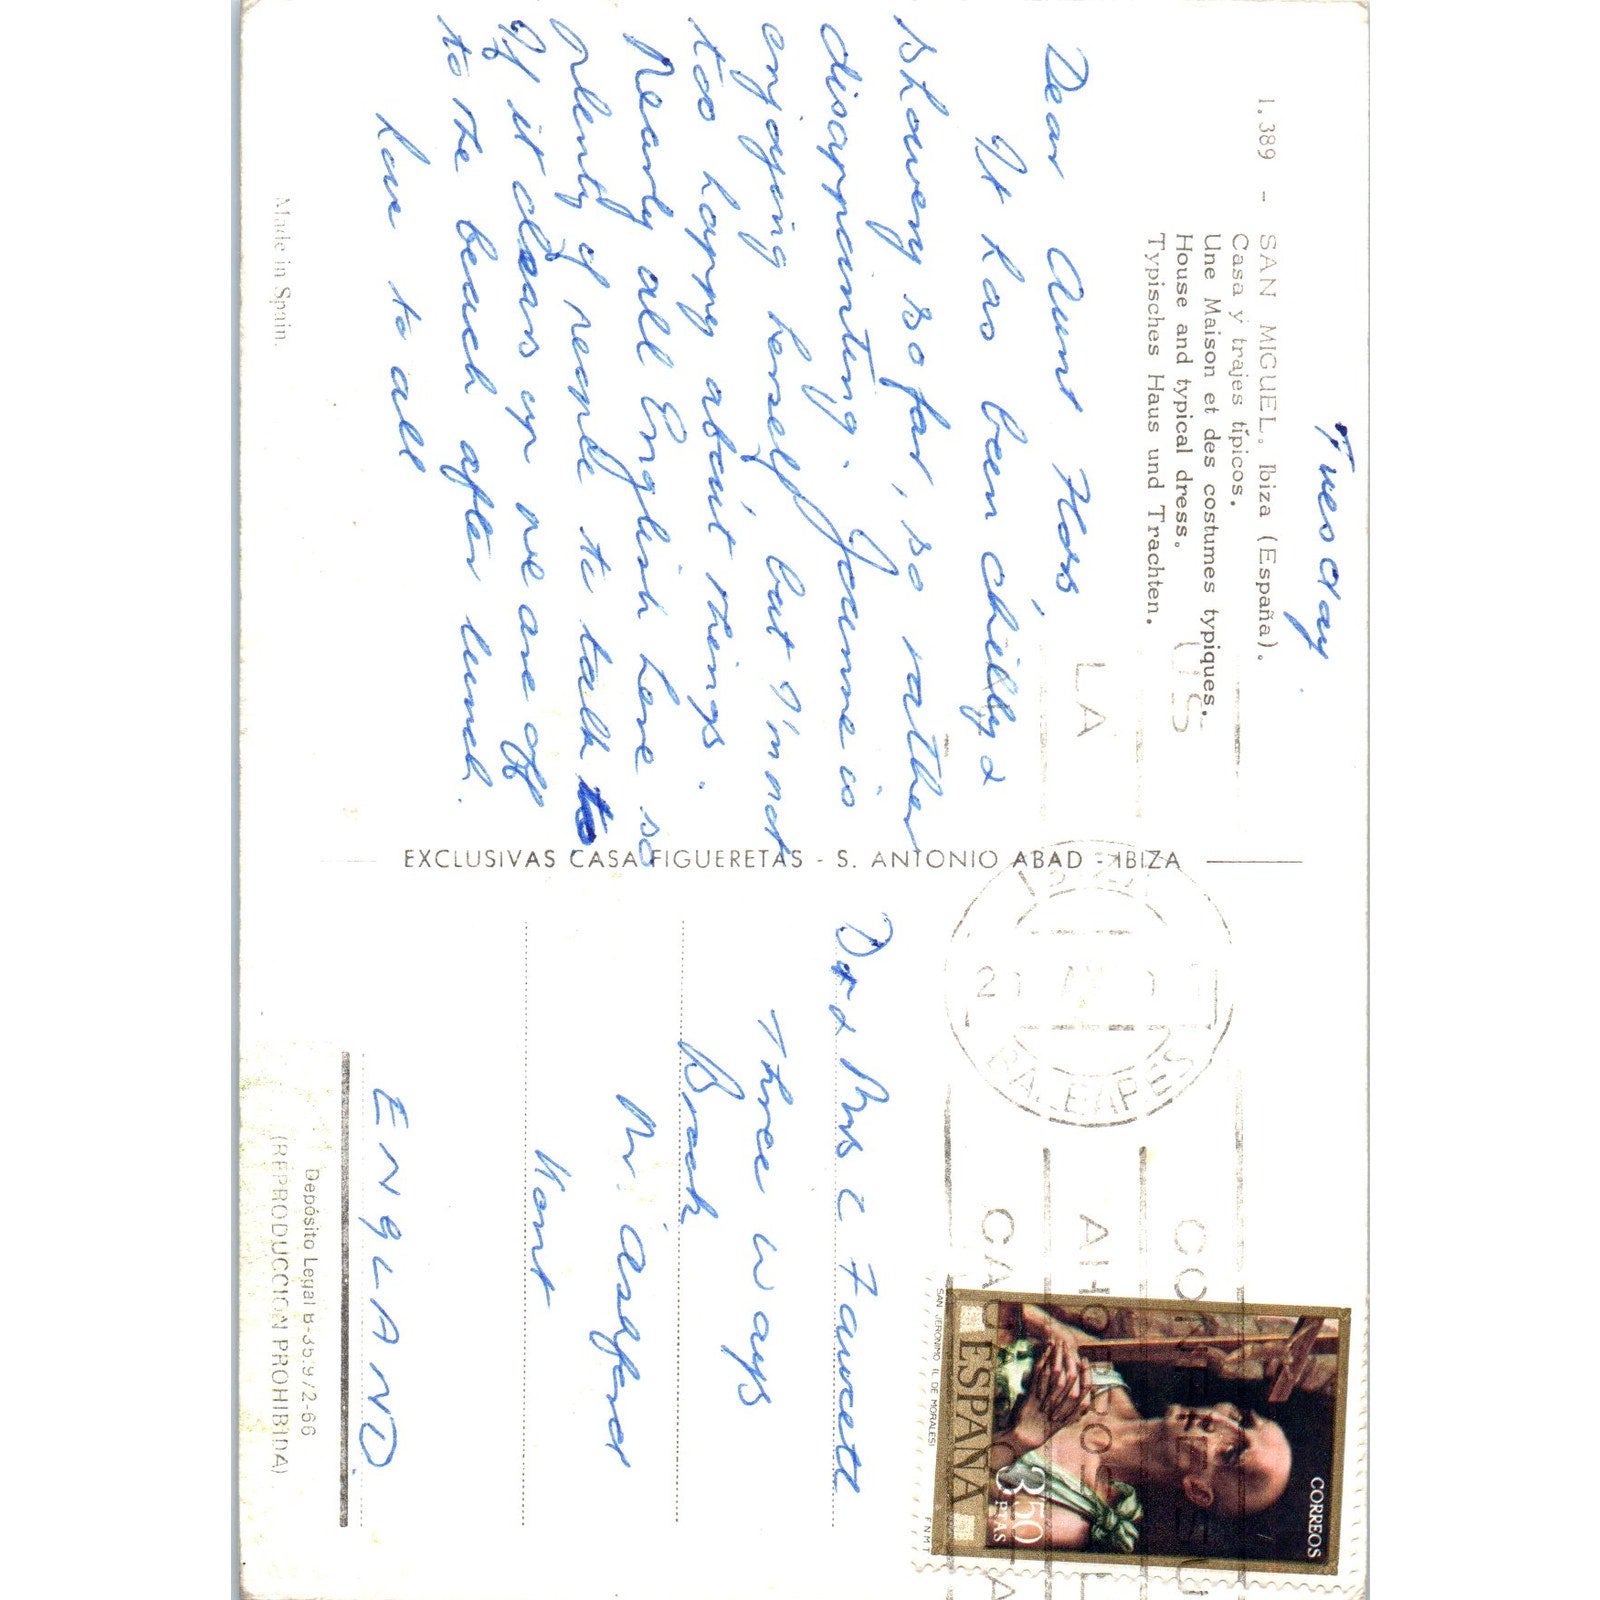 Tuesday
1.389 - SAN MIGUEL. Ibiza (España).
Casa y trajes típicos.
Une Maison et des costumes typiques.
House and typical dress.
Typisches Haus und Trachten.
Dear Aunt Floss,
It has been chilly &
showery so far, so rather
disappointing. Joanne is
enjoying herself but I'm not
too happy about things.
Nearly all English here so
plenty of people to talk to
If it clears up we are off
to the beach after lunch.
Love to all
Made in Spain.
EXCLUSIVAS CASA FIGUERETAS - S. ANTONIO ABAD - IBIZA
IBIZA
BALEARES
LA
CORREOS
ESPAÑA
3'50
PTAS
SAN JERONIMO (L. DE MORALES)
F N M T
& Mrs C Fawcett
Three Ways
Brook
Nr. Ashford
Kent
ENGLAND
Depósito Legal B-35.972-66
(REPRODUCCION PROHIBIDA)